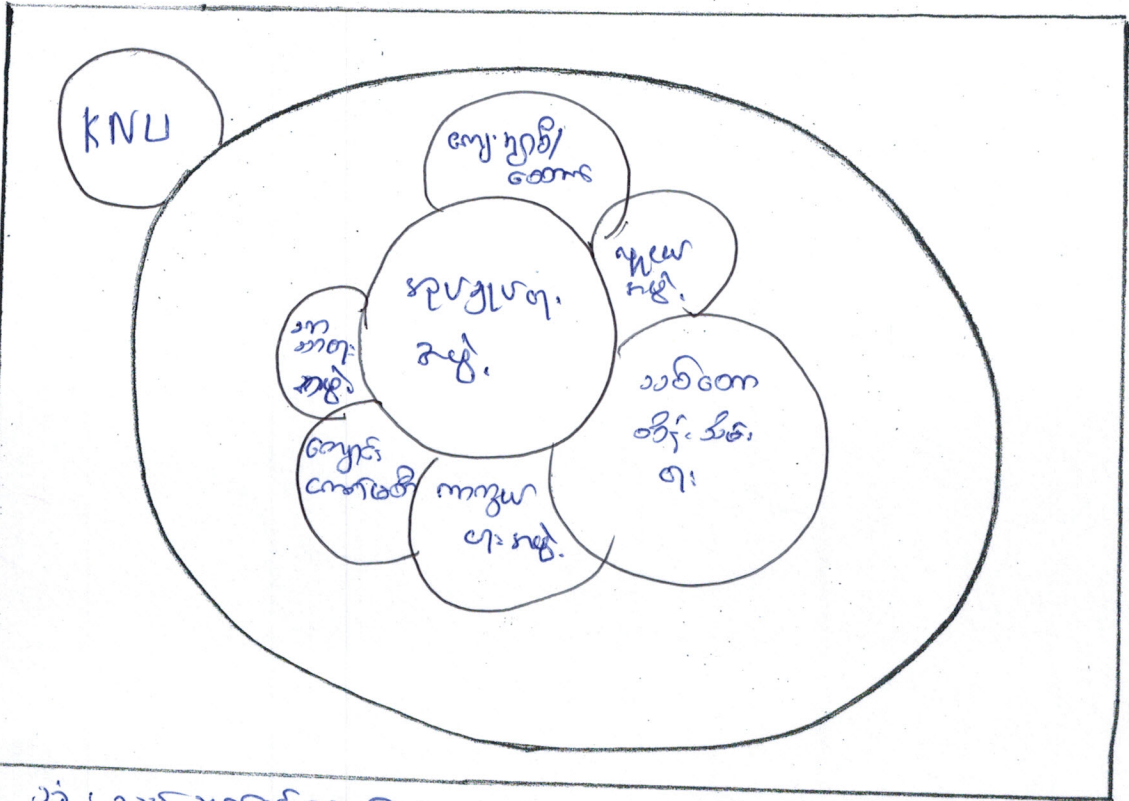 KNU
ကျေးရွာစီ/
ထောက်
လူငယ်
အဖွဲ့
အုပ်ချုပ်ရေး
အဖွဲ့
ဘာ
သာရေး
အဖွဲ့
သစ်တော
ထိန်းသိမ်း
ရေး
ကျောင်း
ကော်မတီ
ကာကွယ်
ရေးအဖွဲ့